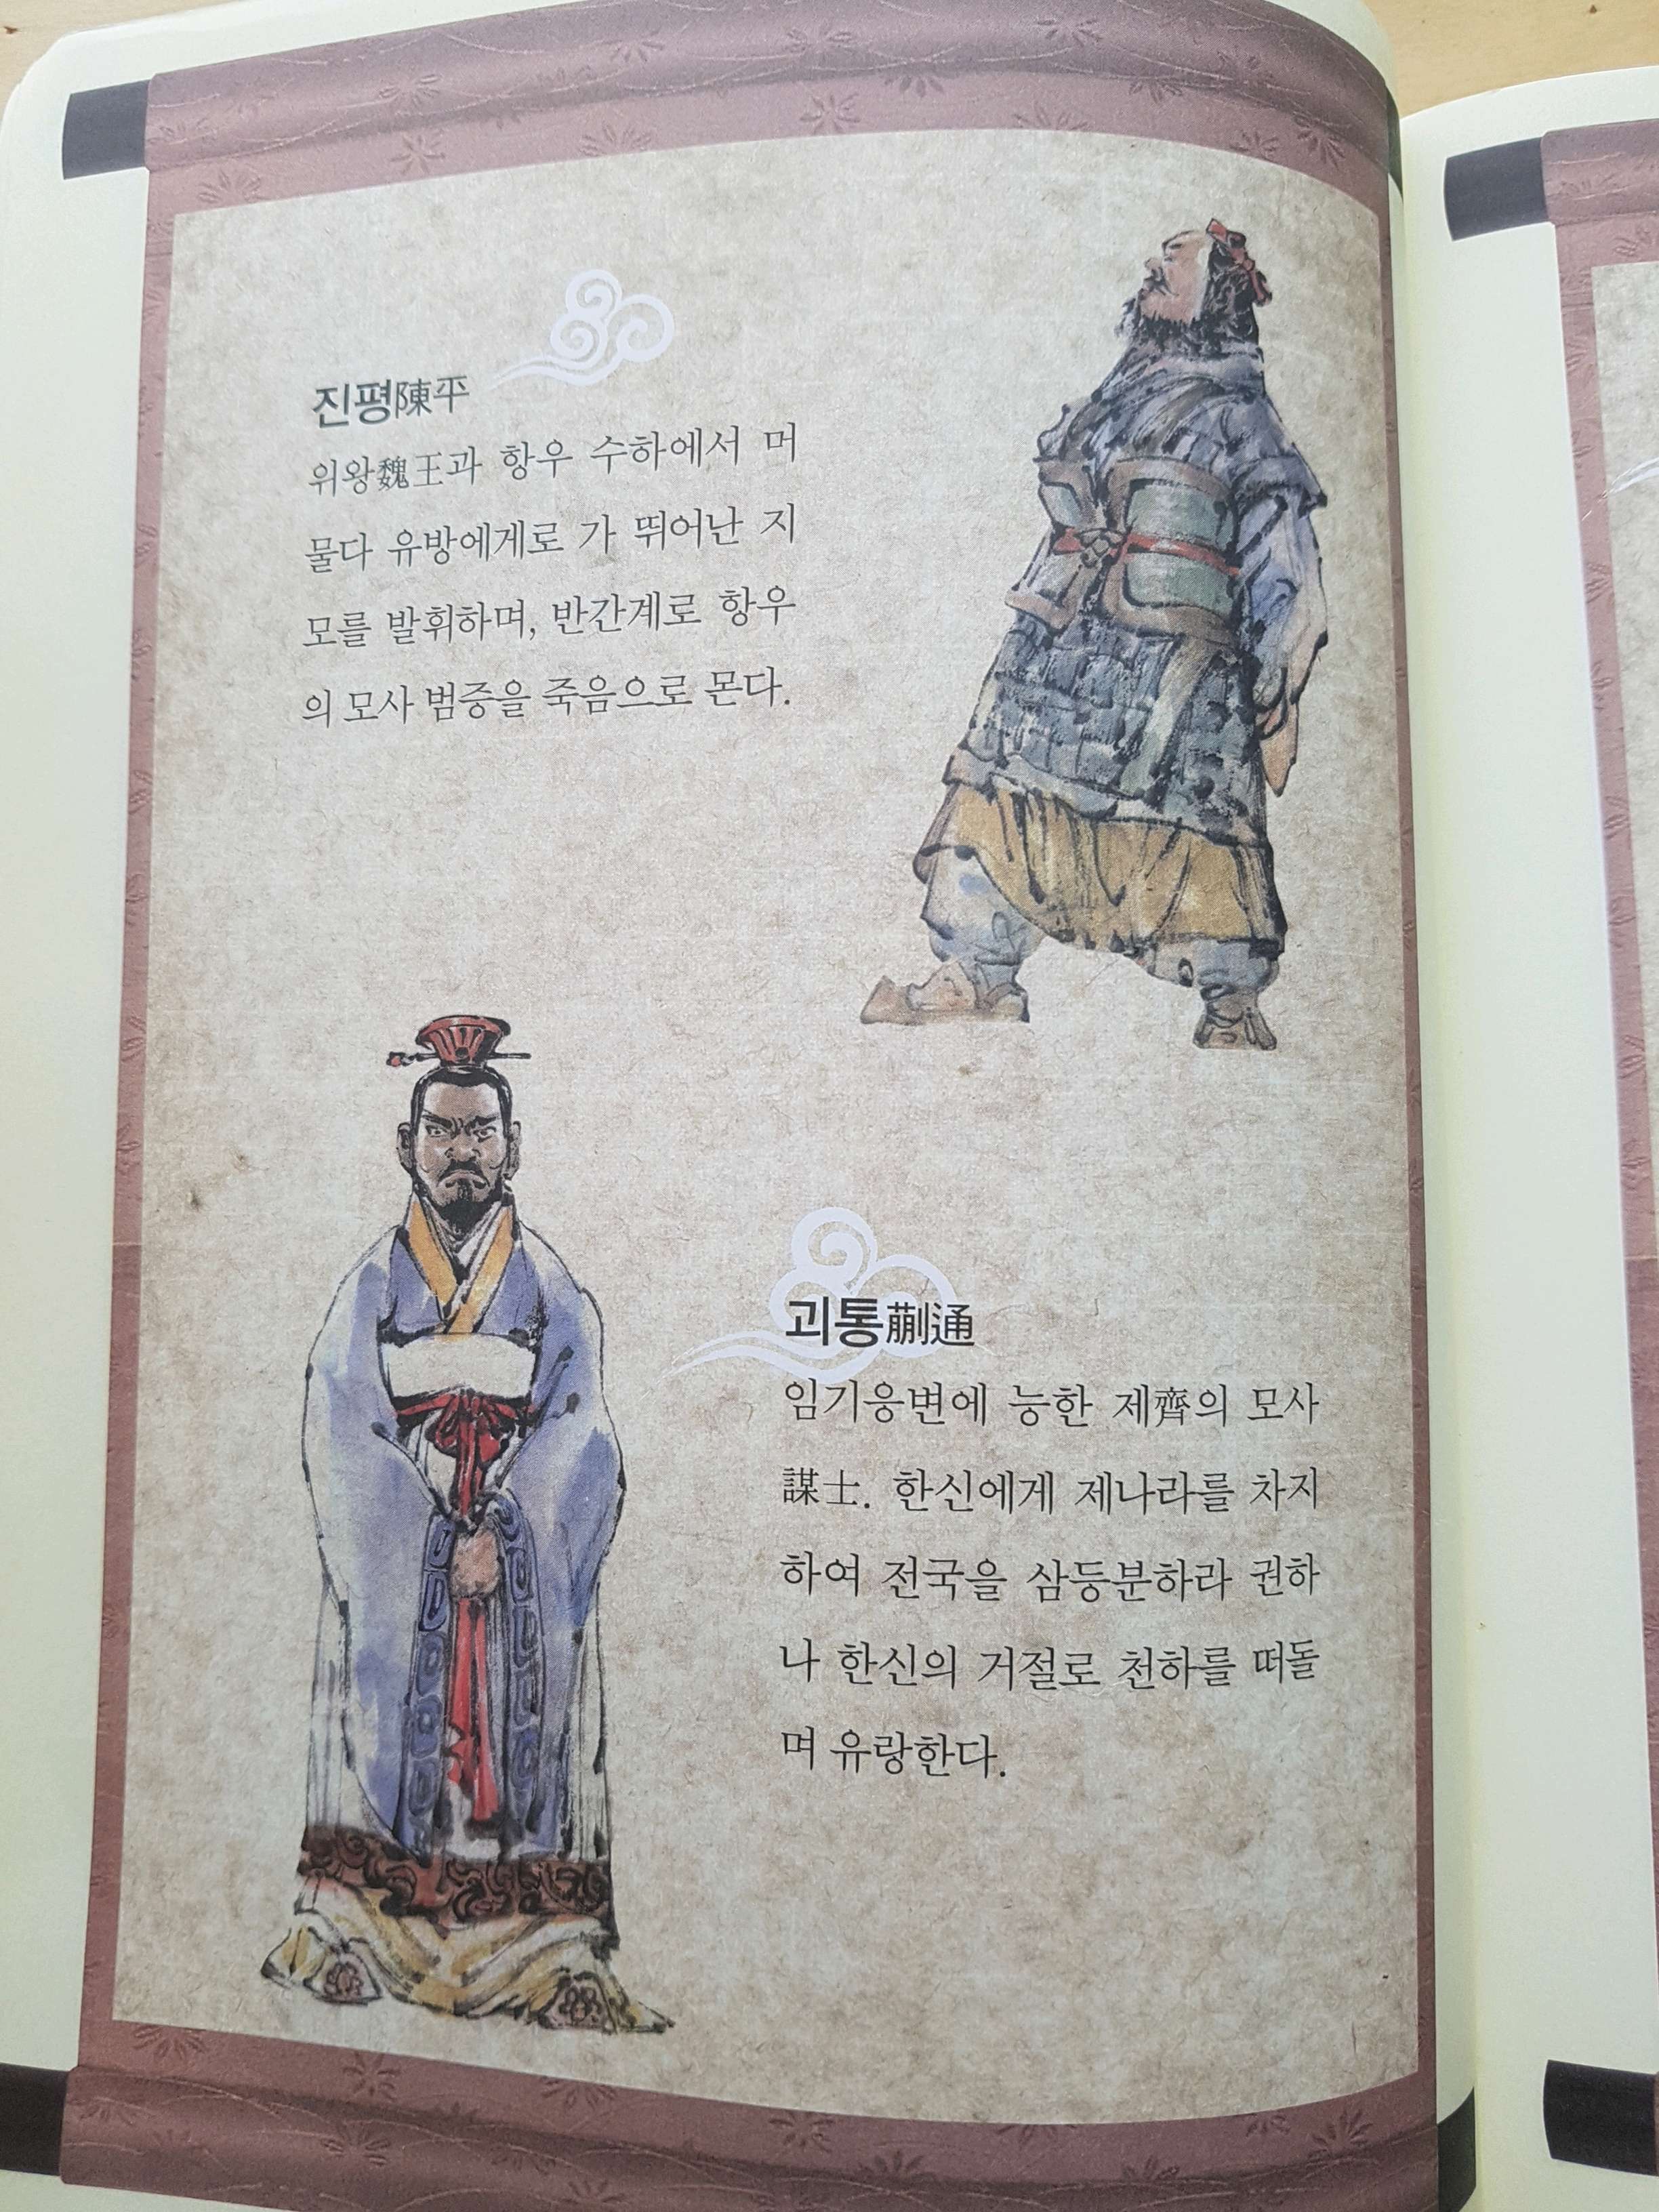 진평陳平
위왕魏王과 항우 수하에서 머
물다 유방에게로 가 뛰어난 지
모를 발휘하며, 반간계로 항우
의 모사 범증을 죽음으로 몬다.
괴통蒯通
임기응변에 능한 제齊의 모사
謀士. 한신에게 제나라를 차지
하여 전국을 삼등분하라 권하
나 한신의 거절로 천하를 떠돌
며 유랑한다.